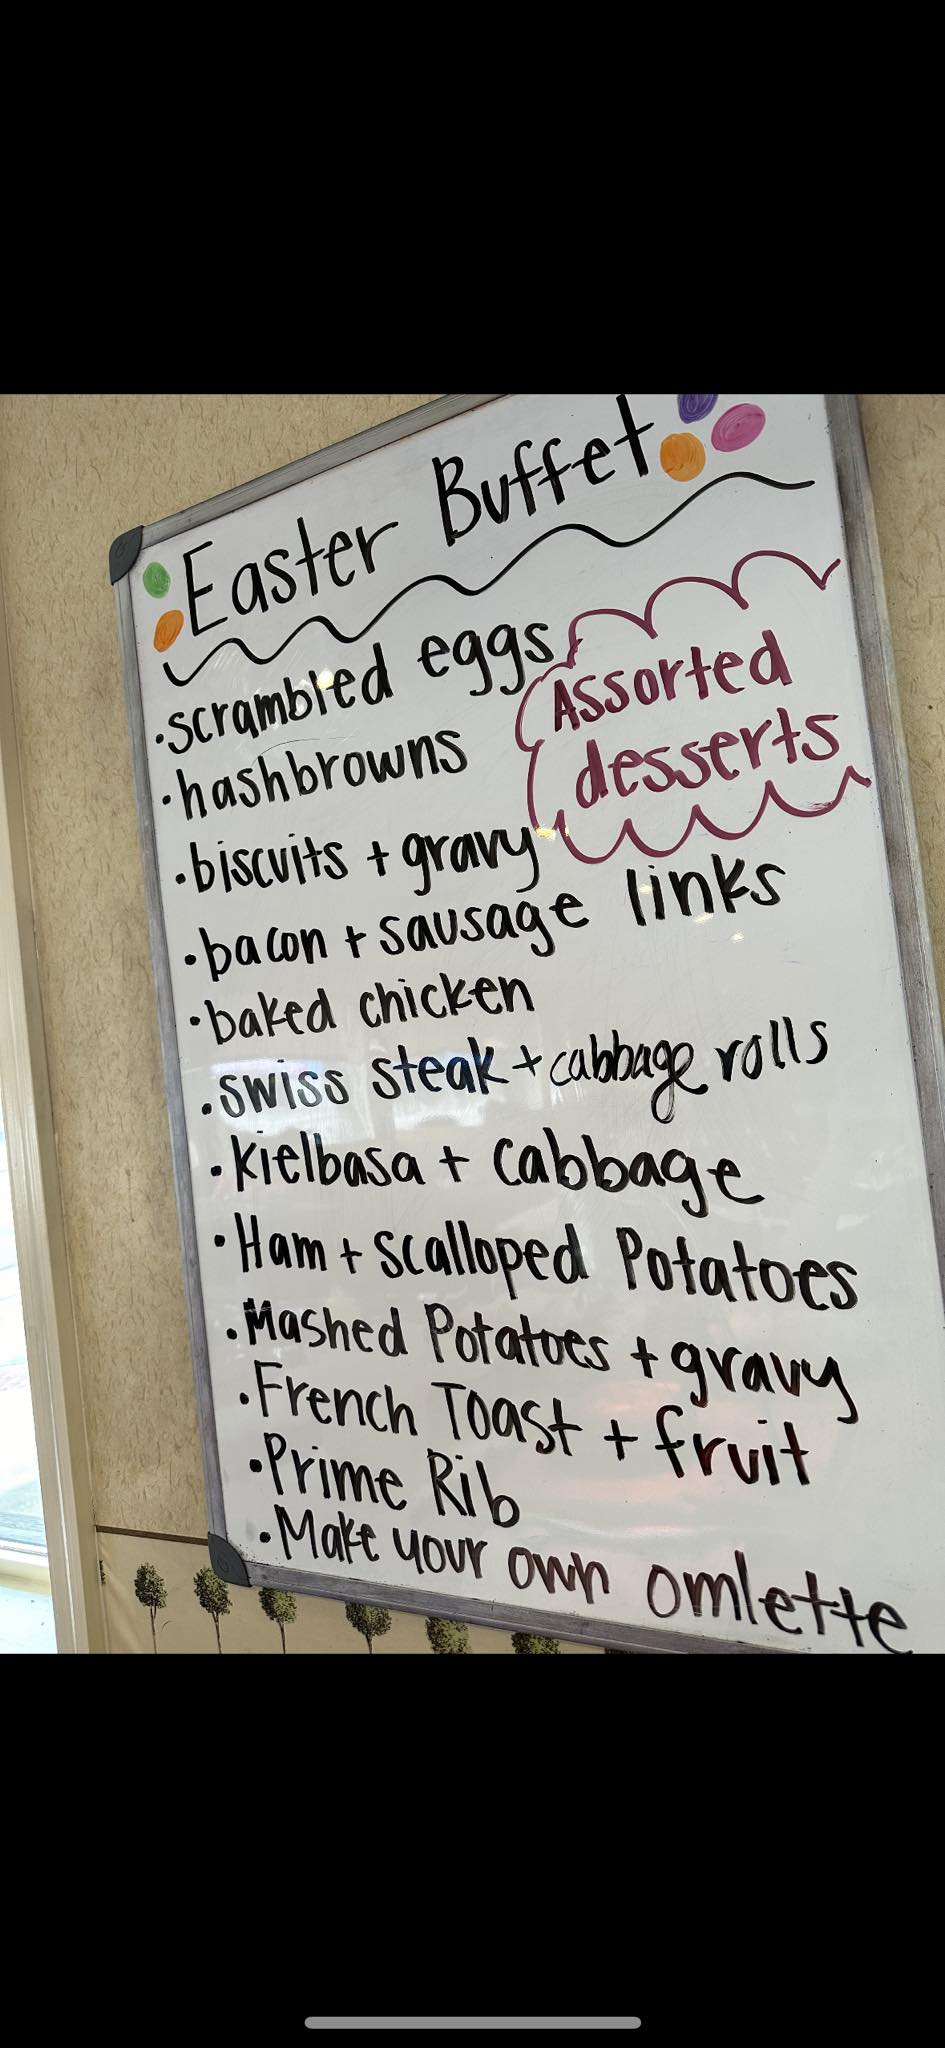 Easter Buffet
•scrambled eggs
Assorted
desserts
•hashbrowns
•biscuits + gravy
•bacon + sausage links
•baked chicken
•swiss steak + cabbage rolls
•Kielbasa + cabbage
•Ham + scalloped Potatoes
•Mashed Potatoes + gravy
•French Toast + fruit
•Prime Rib
•Make your own omlette